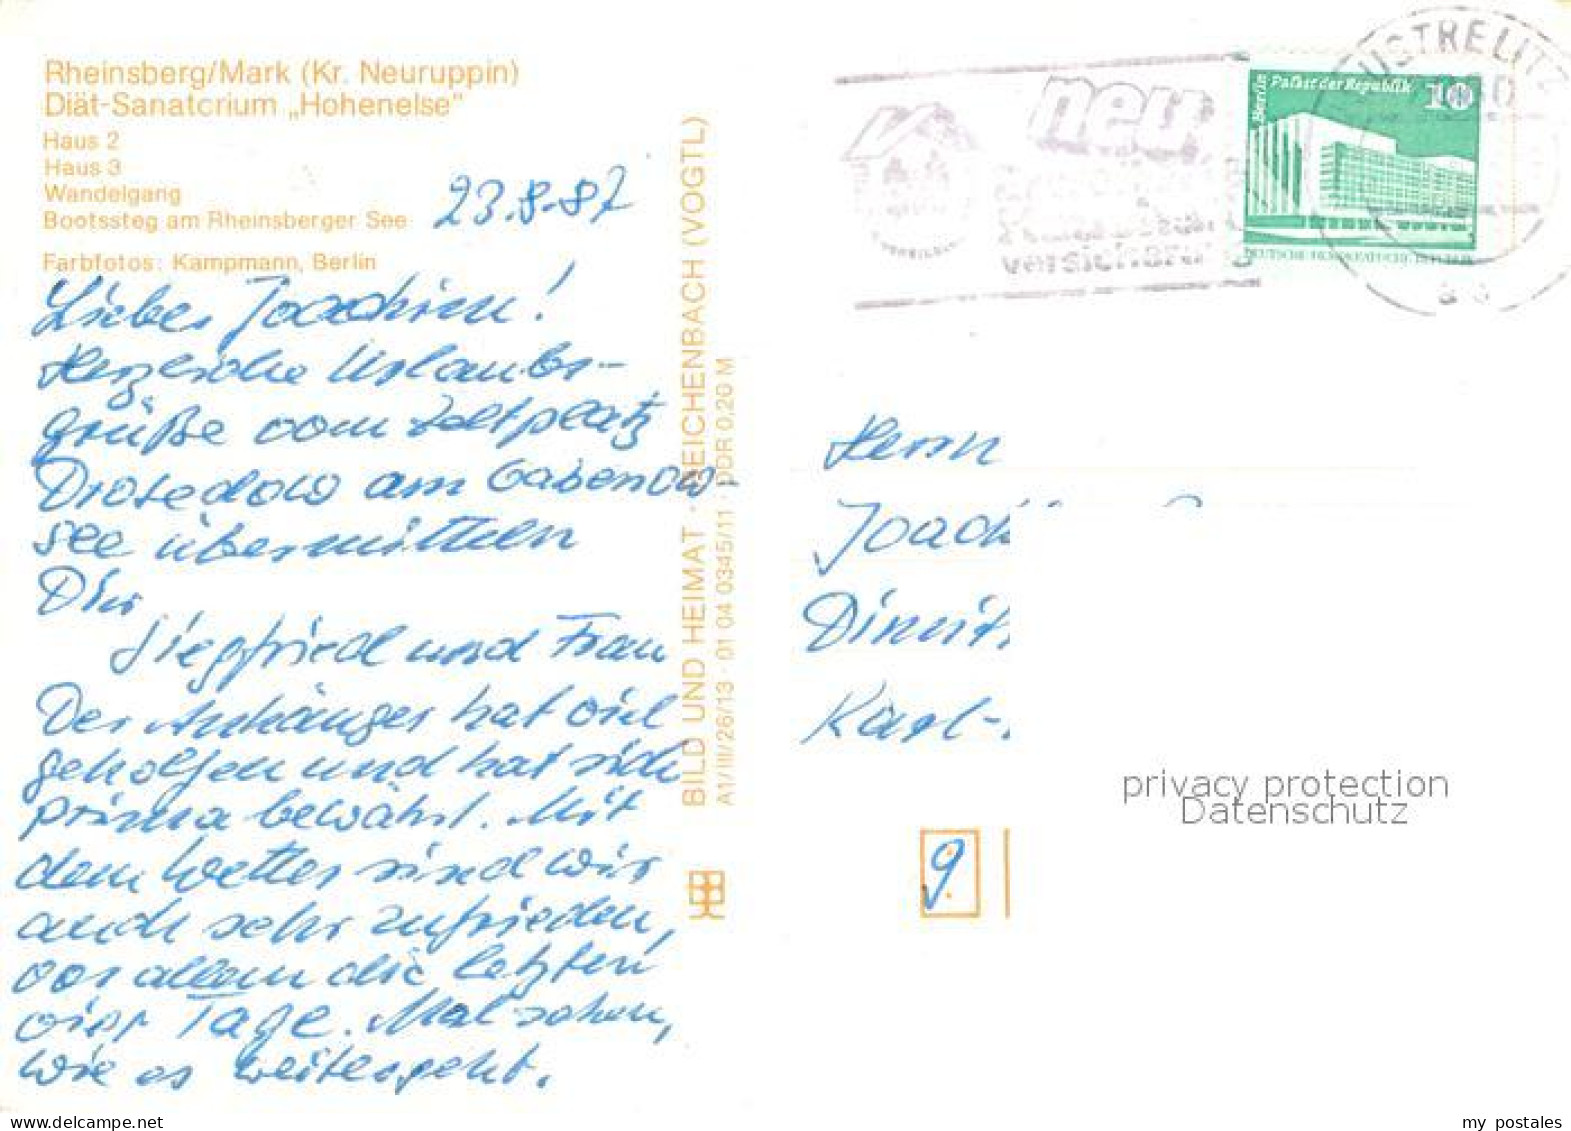 Rheinsberg/Mark (Kr. Neuruppin)
Diät-Sanatorium „Hohenelse“
Haus 2
Haus 3
Wandelgang
Bootssteg am Rheinsberger See
23.8.87
Farbfotos: Kampmann, Berlin
Lieber Joachim!
Herzliche Urlaubs-
grüße vom Zeltplatz
Drosedow am
see übermitteln
Dir
Siegfried und Frau
Der Anhänger hat viel
geholfen und hat sich
prima bewährt. Mit
dem Wetter sind wir
auch sehr zufrieden,
vor allem die letzten
vier Tage. Mal sehen,
wie es weitergeht.
BILD UND HEIMAT · REICHENBACH (VOGTL)
A1/III/26/13 · 01 04 0345/11 · DDR 0,20 M
neu
versichern
Berlin Palast der Republik 10
DEUTSCHE DEMOKRATISCHE REPUBLIK
USTRELITZ
Herrn
Joach
Dimit
Karl-
privacy protection
Datenschutz
9
my postales